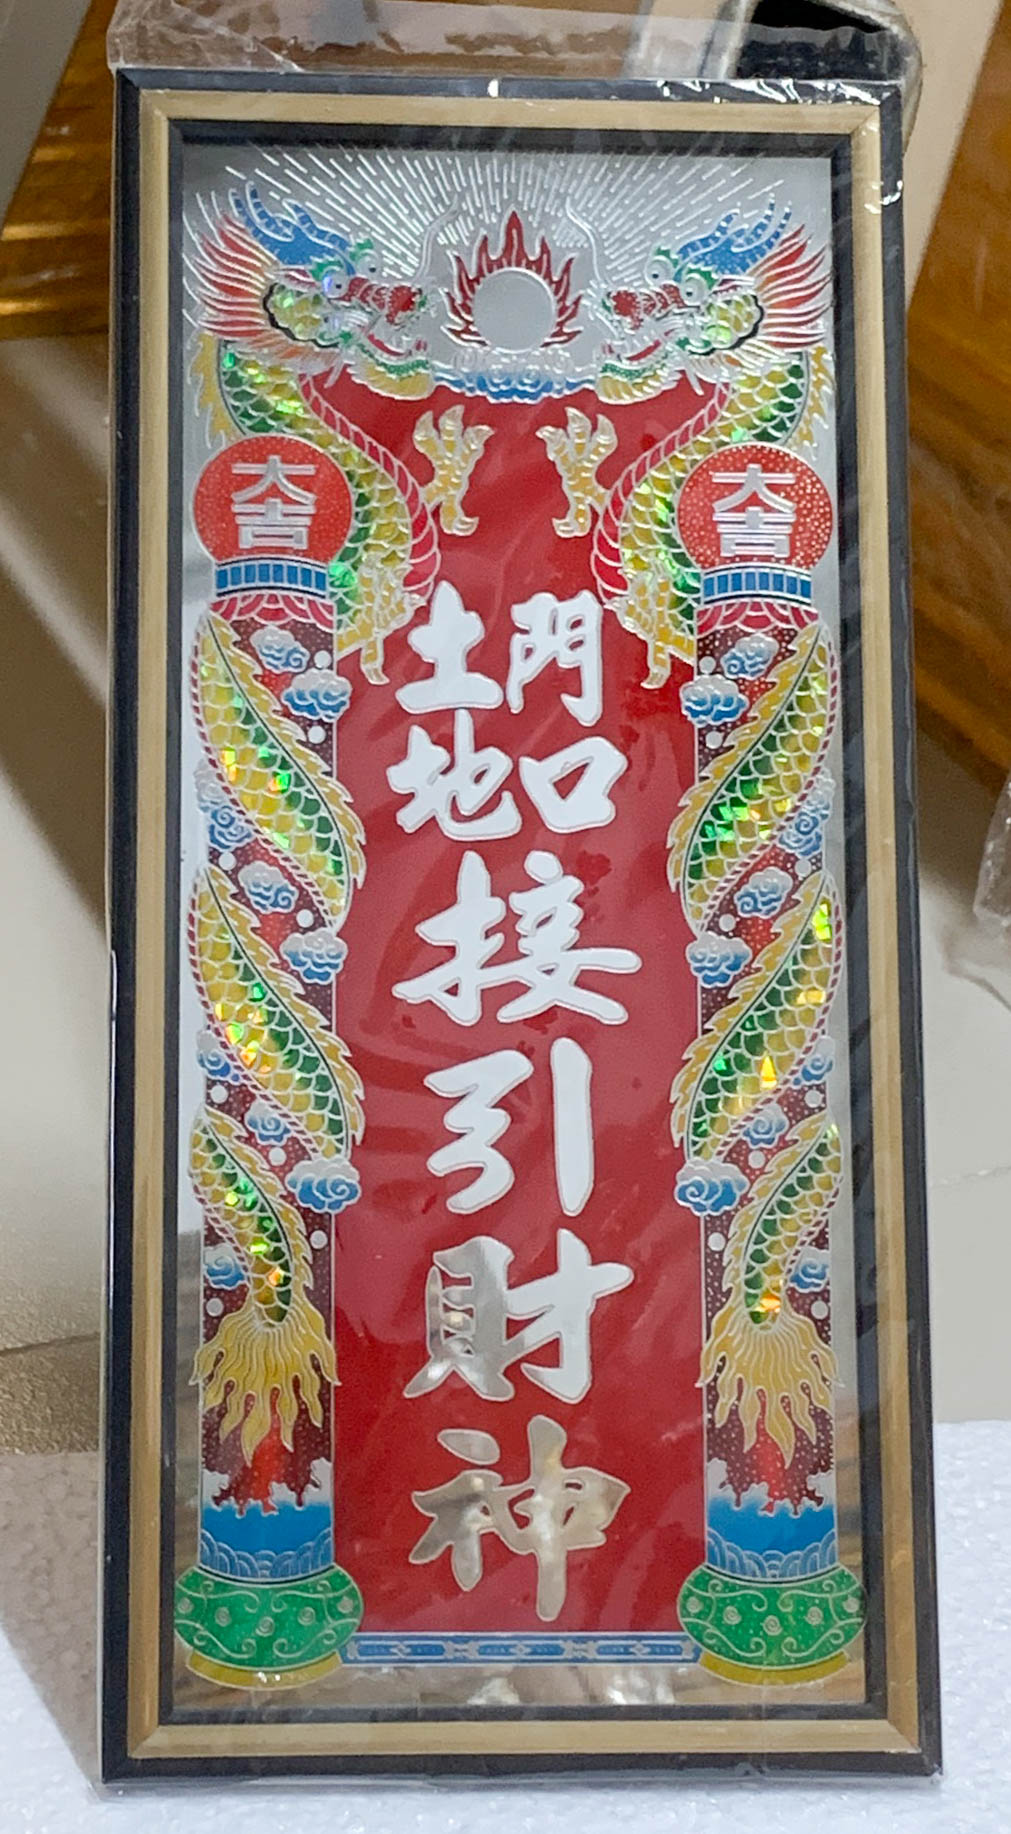 大吉
大吉
門口
土地
接引財神